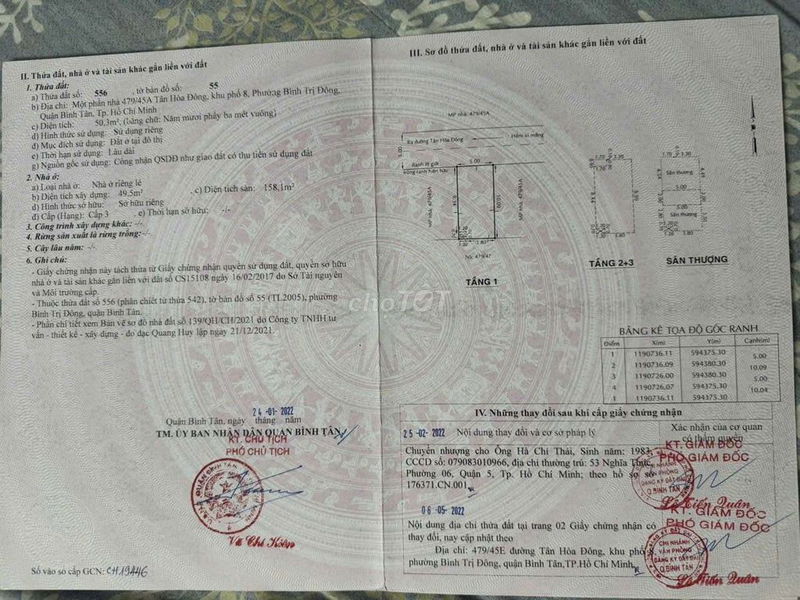 II. Thửa đất, nhà ở và tài sản khác gắn liền với đất
1. Thửa đất:
a) Thửa đất số: 556 , tờ bản đồ số: 55
b) Địa chỉ: Một phần nhà 479/45A Tân Hòa Đông, khu phố 8, Phường Bình Trị Đông,
Quận Bình Tân, Tp. Hồ Chí Minh
c) Diện tích: 50.3m² (bằng chữ: Năm mươi phẩy ba mét vuông)
d) Hình thức sử dụng: Sử dụng riêng
đ) Mục đích sử dụng: Đất ở tại đô thị
e) Thời hạn sử dụng: Lâu dài
g) Nguồn gốc sử dụng: Công nhận QSDĐ như giao đất có thu tiền sử dụng đất
2. Nhà ở:
a) Loại nhà ở: Nhà ở riêng lẻ
b) Diện tích xây dựng: 49.5m² , c) Diện tích sàn: 158.1m²
d) Hình thức sở hữu: Sở hữu riêng
đ) Cấp (Hạng): Cấp 3 , e) Thời hạn sở hữu: -/-
3. Công trình xây dựng khác: -/-
4. Rừng sản xuất là rừng trồng: -/-
5. Cây lâu năm: -/-
6. Ghi chú:
- Giấy chứng nhận này tách thửa từ Giấy chứng nhận quyền sử dụng đất, quyền sở hữu
nhà ở và tài sản khác gắn liền với đất số CS15108 ngày 16/02/2017 do Sở Tài nguyên
và Môi trường cấp.
- Thuộc thửa đất số 556 (phân chiết từ thửa 542), tờ bản đồ số 55 (TL.2005), phường
Bình Trị Đông, quận Bình Tân.
- Phần chi tiết xem Bản vẽ sơ đồ nhà đất số 139/QH/CH/2021 do Công ty TNHH tư
vấn - thiết kế - xây dựng - đo đạc Quang Huy lập ngày 21/12/2021.
24-01-2022
Quận Bình Tân, ngày tháng năm
TM. ỦY BAN NHÂN DÂN QUẬN BÌNH TÂN
KT. CHỦ TỊCH
PHÓ CHỦ TỊCH
Số vào sổ cấp GCN: CH19446
III. Sơ đồ thửa đất, nhà ở và tài sản khác gắn liền với đất
MP nhà: 479/45A
Ra đường Tân Hòa Đông
Hẻm xi măng
5.00
Ranh lộ giới
5.00
MP nhà: 479/45A
MP nhà: 479/45A
Nhà: 479/47
TẦNG 1
TẦNG 2+3
Sân thượng
5.00
Sân thượng
SÂN THƯỢNG
BẢNG KÊ TỌA ĐỘ GÓC RANH
Điểm X(m) Y(m) Cạnh(m)
1 1190736.11 594375.30
5.00
2 1190736.09 594380.30
10.09
3 1190726.00 594380.30
5.00
4 1190726.07 594375.30
10.04
1 1190736.11 594375.30
IV. Những thay đổi sau khi cấp giấy chứng nhận
25-02-2022 Nội dung thay đổi và cơ sở pháp lý
Xác nhận của cơ quan
có thẩm quyền
Chuyển nhượng cho Ông Hà Chí Thái, Sinh năm: 1983,
CCCD số: 079083010966, địa chỉ thường trú: 53 Nghĩa Thục,
Phường 06, Quận 5, Tp. Hồ Chí Minh; theo hồ sơ số
176371.CN.001
KT. GIÁM ĐỐC
PHÓ GIÁM ĐỐC
Lê Tiến Quân
06-05-2022
Nội dung địa chỉ thửa đất tại trang 02 Giấy chứng nhận có
thay đổi, nay cập nhật theo
Địa chỉ: 479/45E đường Tân Hòa Đông, khu phố 8,
phường Bình Trị Đông, quận Bình Tân, TP.Hồ Chí Minh.
KT. GIÁM ĐỐC
PHÓ GIÁM ĐỐC
CHI NHÁNH
VĂN PHÒNG
ĐĂNG KÝ ĐẤT ĐAI
Q.BÌNH TÂN
Lê Tiến Quân
choTỐT